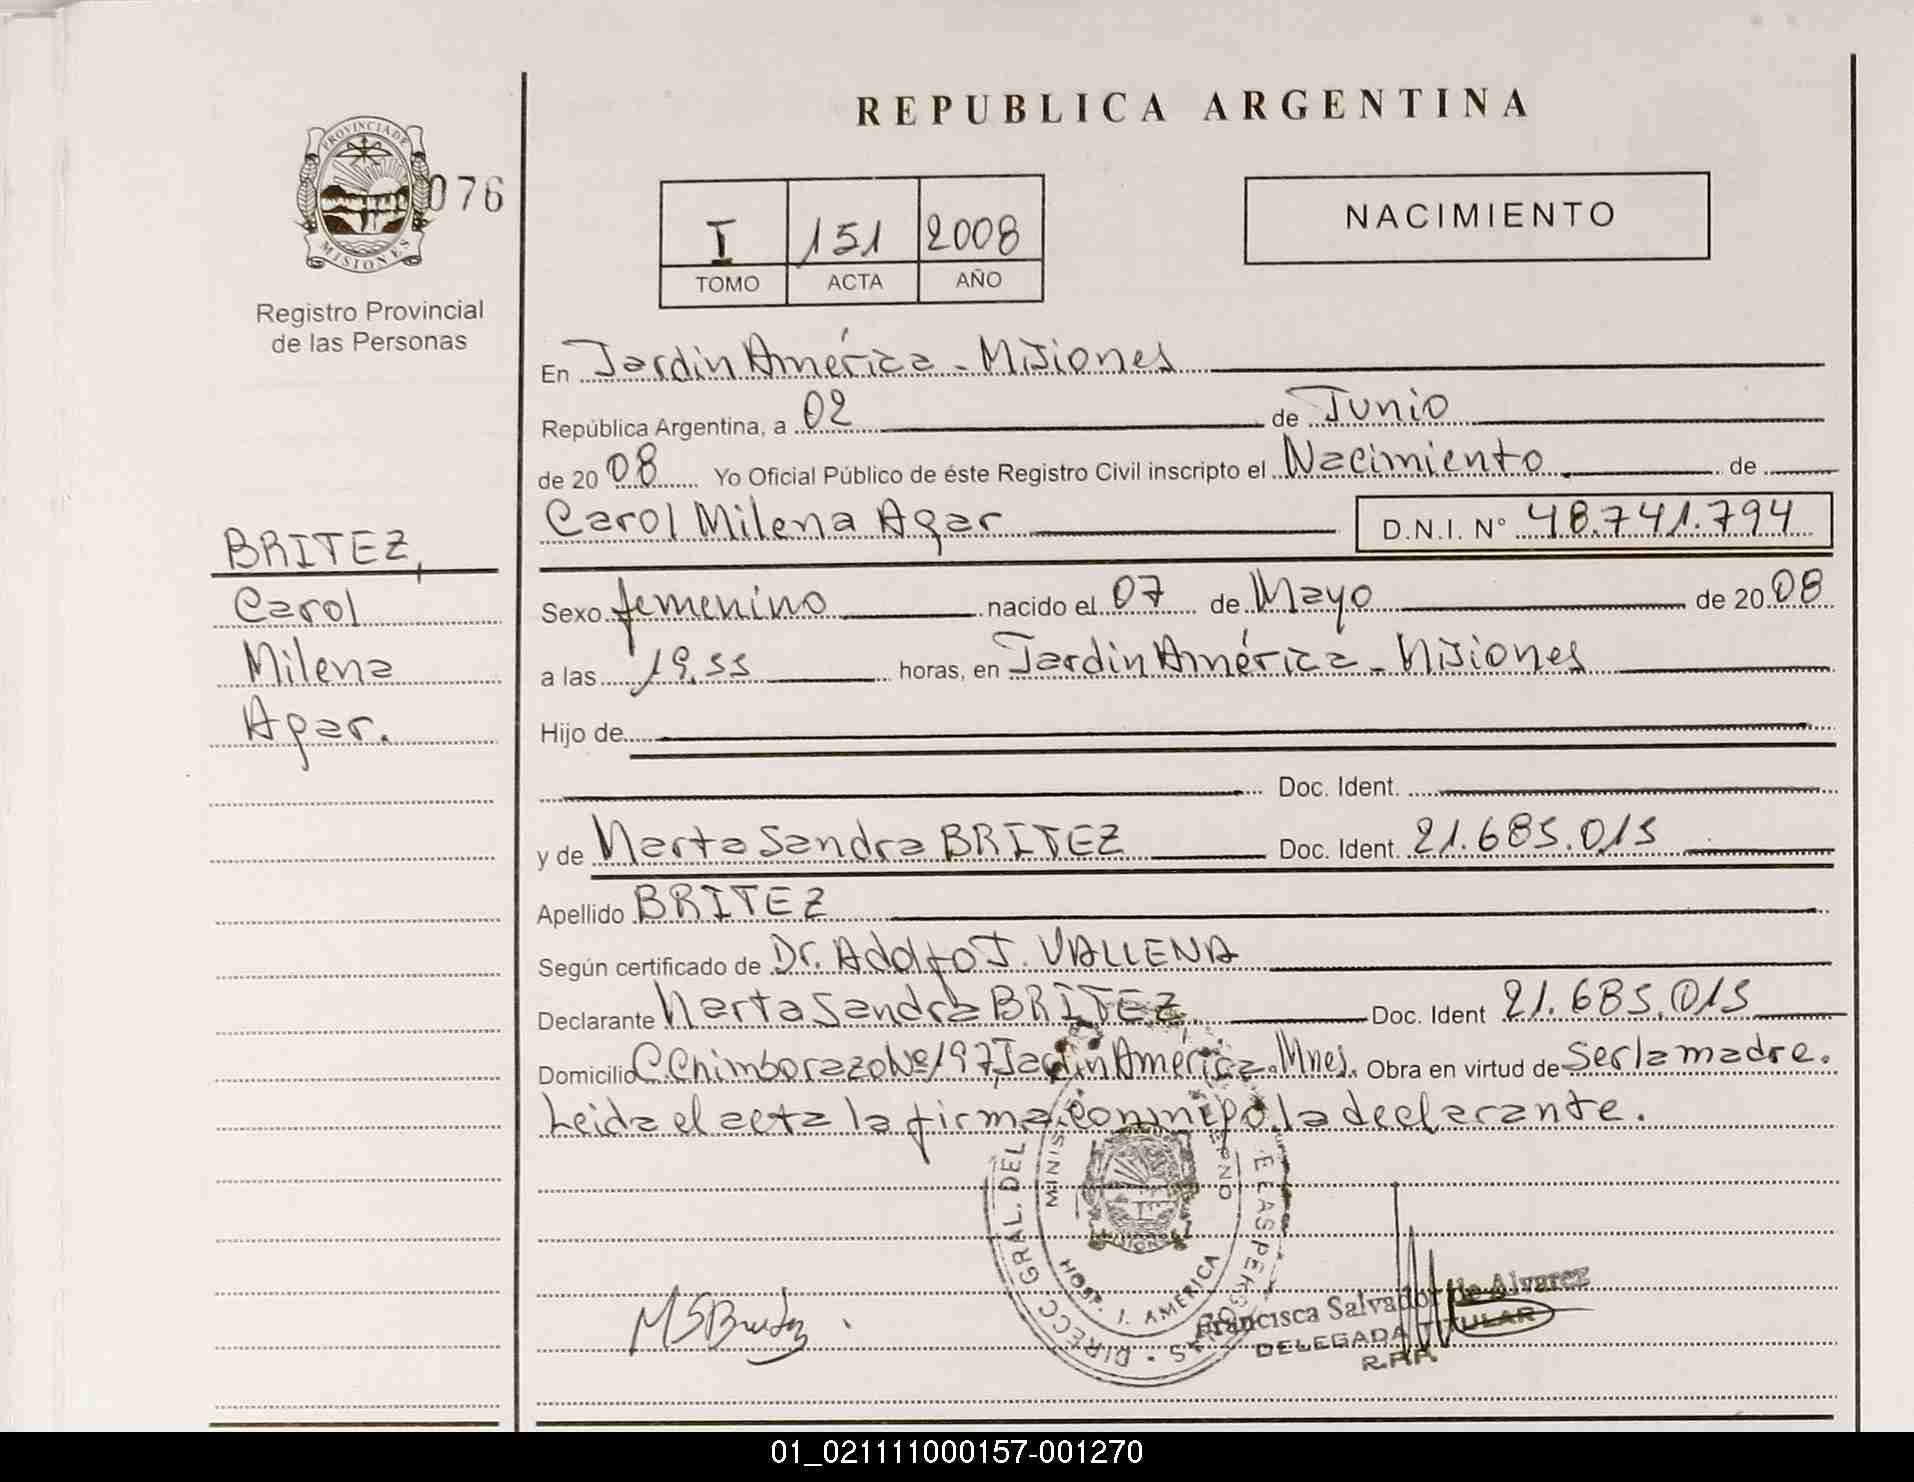 REPUBLICA ARGENTINA
PROVINCIA DE
MISIONES
076
Registro Provincial
de las Personas
I 151 2008
TOMO ACTA AÑO
NACIMIENTO
En Jardin América - Misiones
República Argentina, a 02 de Junio
de 2008 Yo Oficial Público de éste Registro Civil inscripto el Nacimiento de
Carol Milena Agar D.N.I. N° 48.741.794
BRITEZ,
Carol
Milena
Agar.
Sexo femenino nacido el 07 de Mayo de 2008
a las 19.55 horas, en Jardin América - Misiones
Hijo de
Doc. Ident.
y de Marta Sandra BRITEZ Doc. Ident. 21.685.015
Apellido BRITEZ
Según certificado de Dr. Adolfo J. VALLENA
Declarante Marta Sandra BRITEZ Doc. Ident 21.685.015
Domicilio C. Chimborazo Nº 197 Jardin América. Mnes. Obra en virtud de Ser la madre.
Leida el acta la firma conmigo la declarante.
DIRECC GRAL. DEL
MINIS
HOSP. J. AMERICA
MSBritez
Francisca Salvador de Alvarez
DELEGADA TITULAR
R.P.P.
01_021111000157-001270